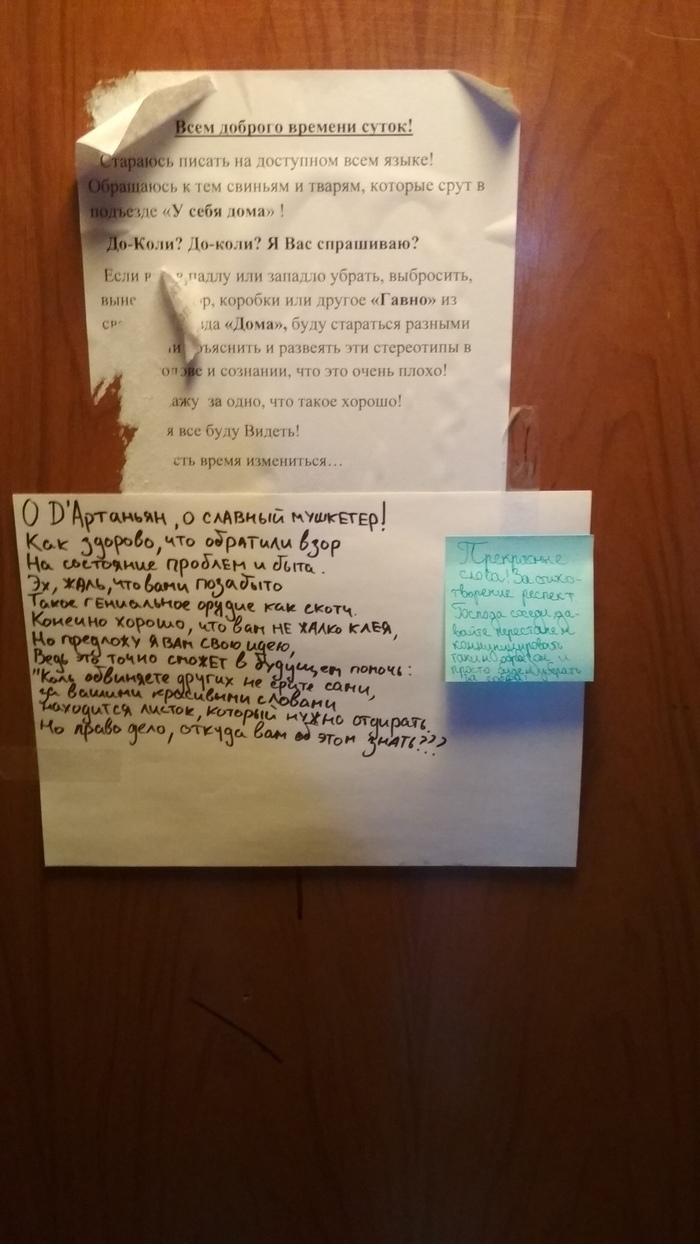 Всем доброго времени суток!
Стараюсь писать на доступном всем языке!
Обращаюсь к тем свиньям и тварям, которые срут в
подъезде «У себя дома» !
До-Коли? До-коли? Я Вас спрашиваю?
Если падлу или западло убрать, выбросить,
выне р, коробки или другое «Гавно» из
да «Дома», буду стараться разными
ъяснить и развеять эти стереотипы в
и сознании, что это очень плохо!
ажу за одно, что такое хорошо!
я все буду Видеть!
сть время измениться...
О Д'Артаньян, о славный мушкетер!
Как здорово, что обратили взор
На состояние проблем и быта.
Эх, жаль, что вами позабыто
Такое гениальное орудие как скотч.
Конечно хорошо, что вам НЕ жалко клея,
Но предложу я вам свою идею,
Ведь это точно сможет в будущем помочь:
"Коль обвиняете других не срите сами,
за вашими красивыми словами
находится листок, который нужно отдирать.
Но право дело, откуда вам об этом знать???
Прекрасные
слова! За стихо-
творение респект
Господа соседи, да-
вайте перестанем
коммуницировать
таким образом и
просто будем убирать
за собой!